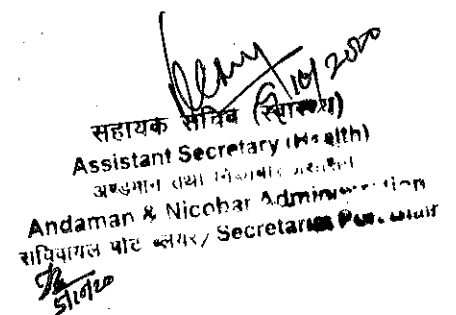 5/10/2020
सहायक सचिव (स्वास्थ्य)
Assistant Secretary (Health)
अण्डमान तथा निकोबार प्रशासन
Andaman & Nicobar Administration
सचिवालय पोर्ट ब्लेयर/ Secretariat Port Blair
5/10/20